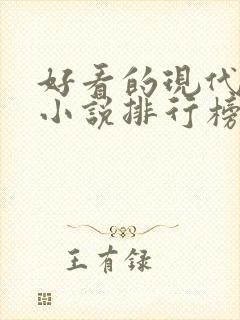 好看的現代
小說排行榜
王有録